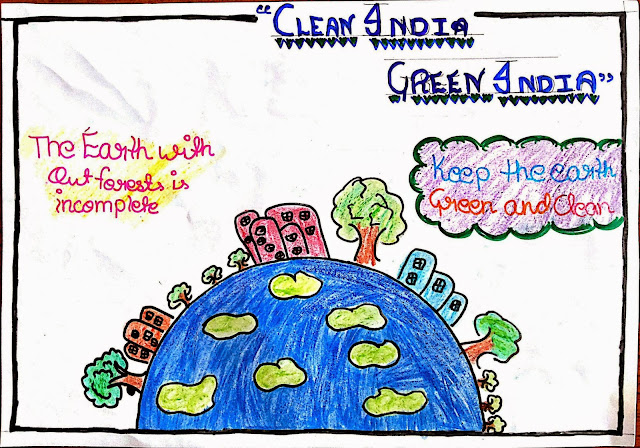 "CLEAN INDIA
GREEN INDIA"
The Earth with
Out forests is
incomplete
Keep the earth
Green and Clean